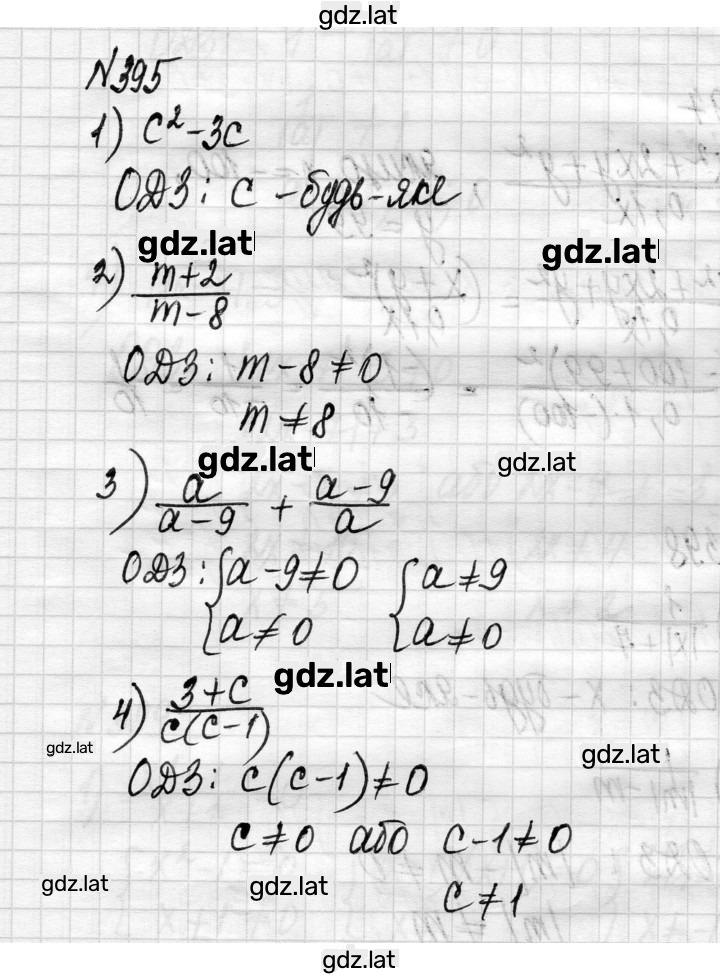 gdz.lat
N395
1) c² - 3c
ОДЗ: c - будь-яке
gdz.lat gdz.lat
2) m+2 / m-8
ОДЗ: m - 8 ≠ 0
m ≠ 8
gdz.lat gdz.lat
3) a / a-9 + a-9 / a
ОДЗ: { a - 9 ≠ 0 { a ≠ 9
a ≠ 0 a ≠ 0
gdz.lat
4) 3+c / c(c-1)
gdz.lat gdz.lat
ОДЗ: c(c-1) ≠ 0
c ≠ 0 або c - 1 ≠ 0
gdz.lat gdz.lat c ≠ 1
gdz.lat